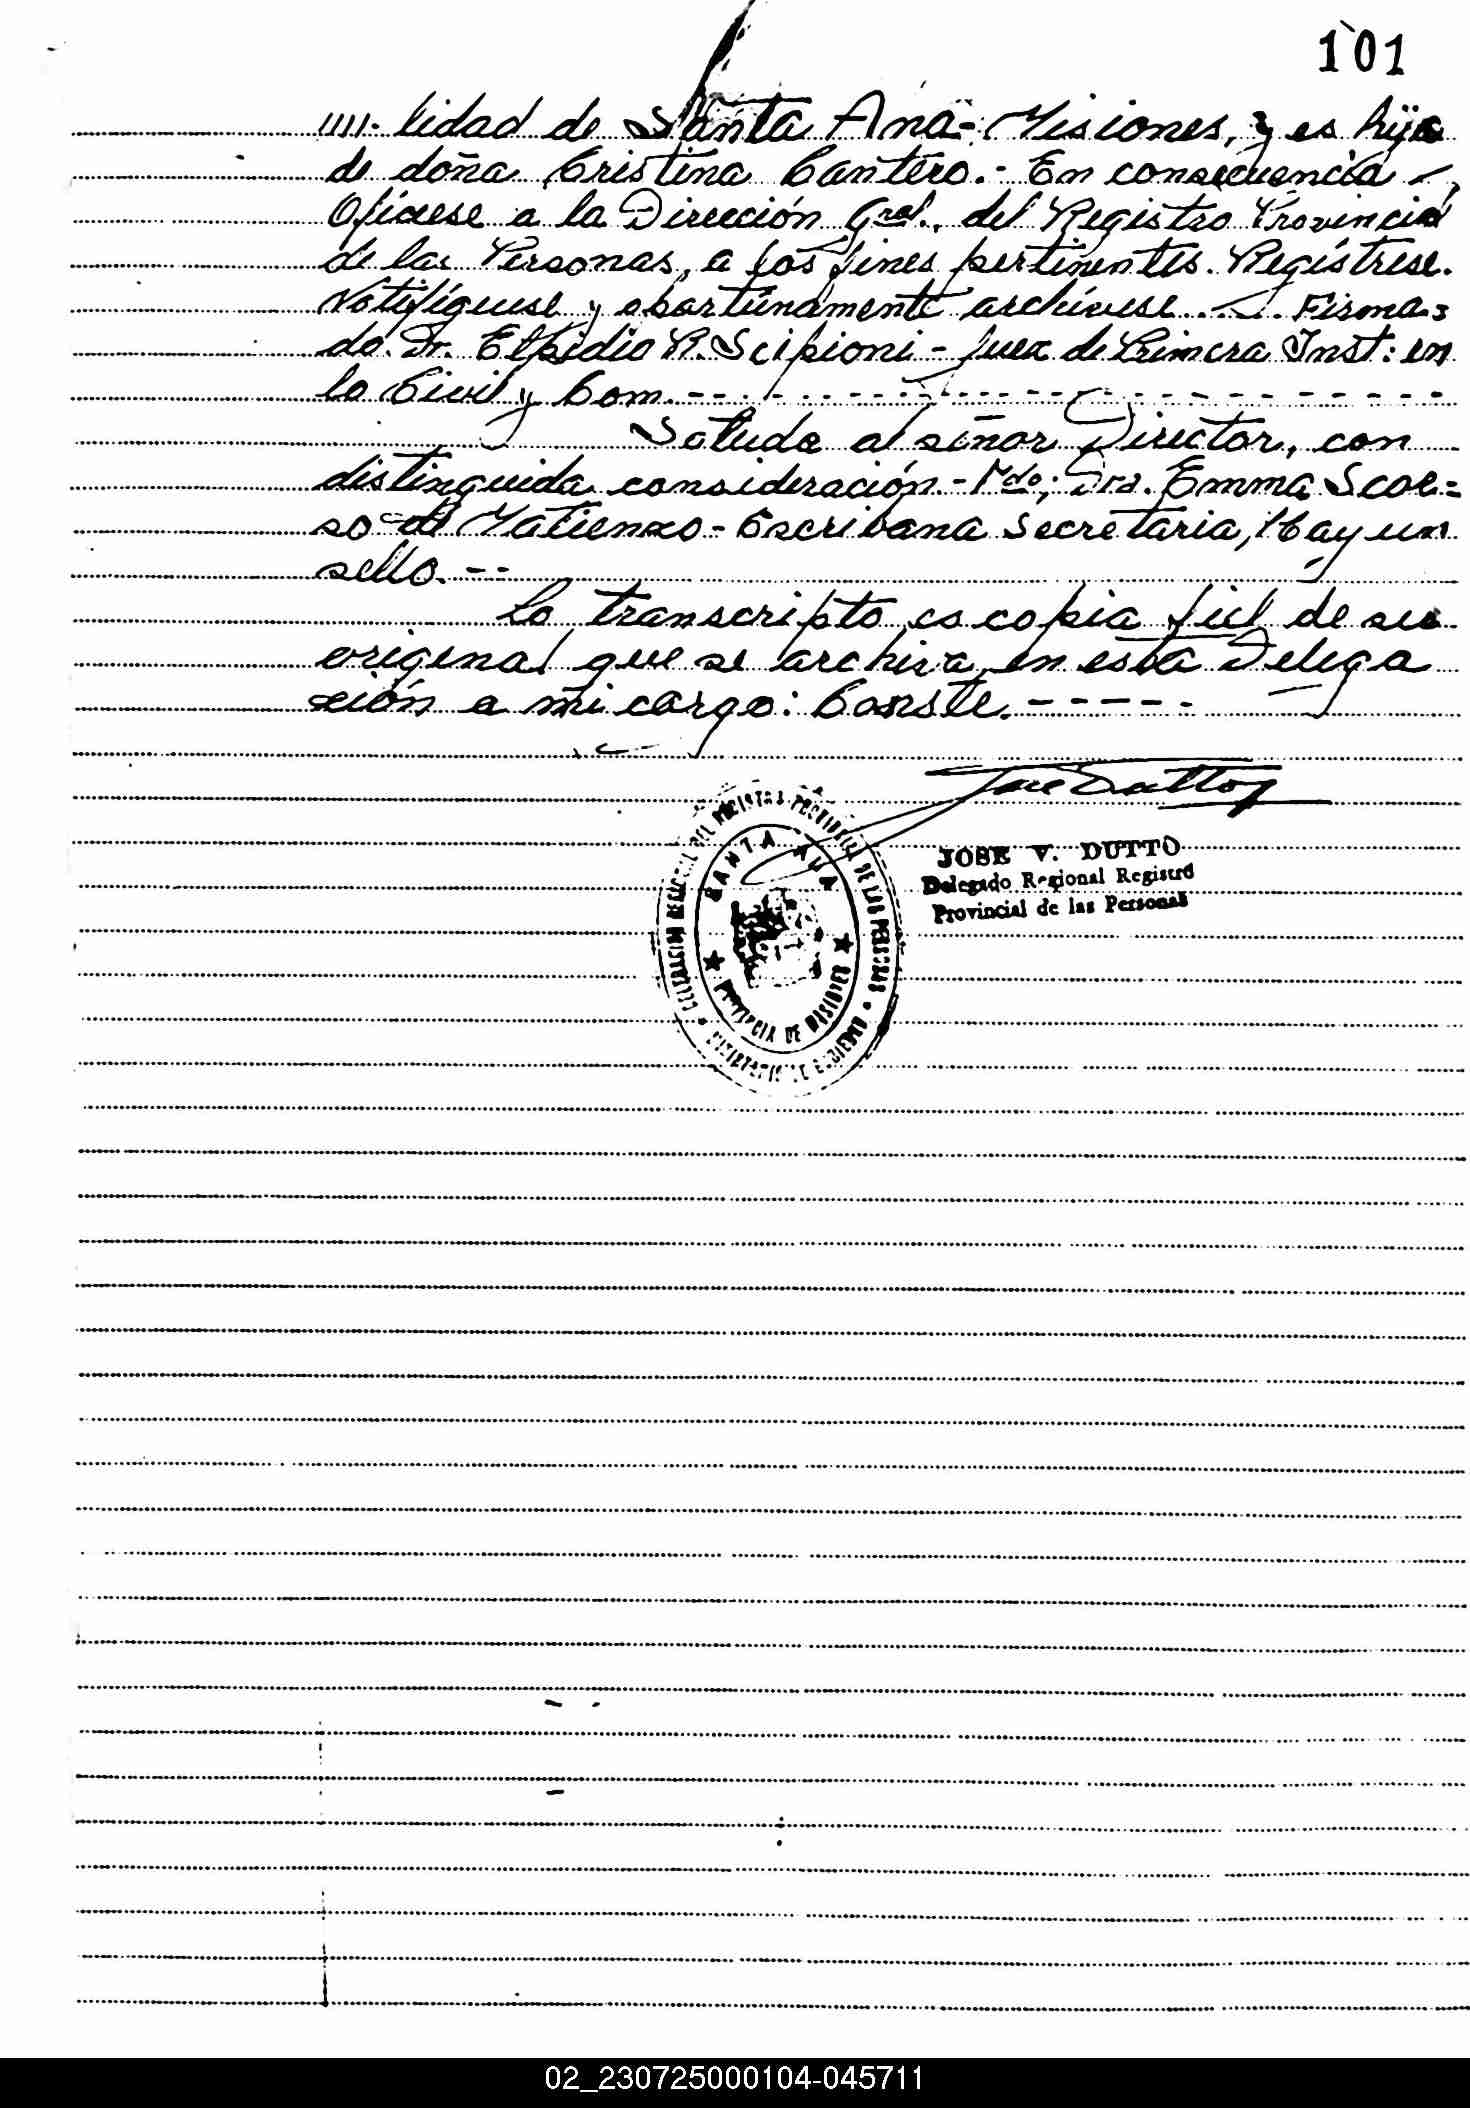 101
////. lidad de Santa Ana - Misiones, y es hija
de doña Cristina Cantero.- En consecuencia
Ofíciese a la Dirección Gral. del Registro Provincial
de las Personas, a los fines pertinentes. Regístrese.
Notifíquese y oportúnamente archívese..... Firma=
do. Dr. Elpidio R. Scipioni - Juez de Primera Inst: en
lo Civil y Com.
Saludo al señor Director, con
distinguida consideración.- Fdo; Dra. Emma
so de Matienzo - Escribana Secretaria, Hay un
sello.--
Lo transcripto es copia fiel de su
original que se archiva en esta Delega
ción a mi cargo: Conste.-----
JOSE V. DUTTO
Delegado Regional Registro
Provincial de las Personas
SANTA ANA
PROVINCIA DE MISIONES
02_230725000104-045711